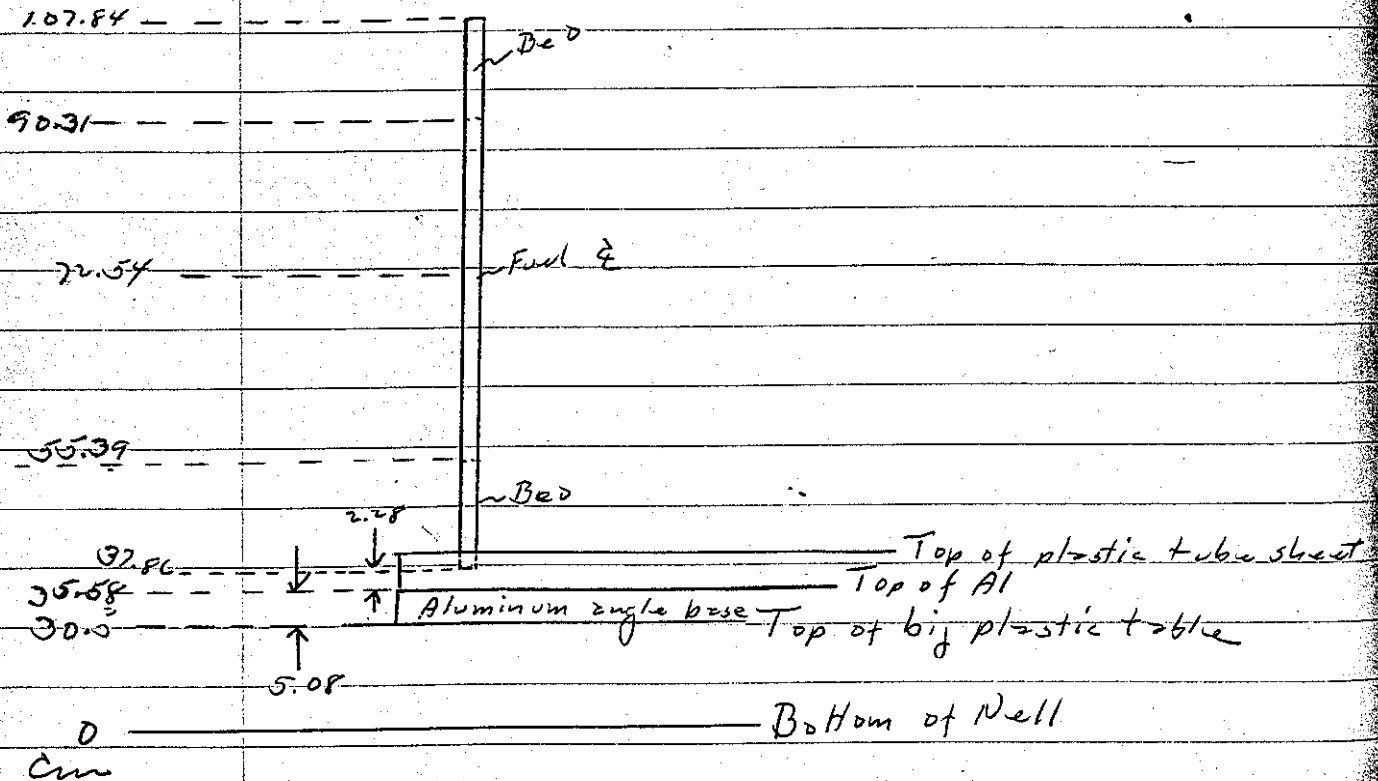 107.84
BeO
90.31
72.54
Fuel ℄
55.39
BeO
2.28
37.86
Top of plastic tube sheet
35.58
Top of Al
Aluminum angle base
30.5
Top of big plastic table
5.08
0
Bottom of Nell
Cm